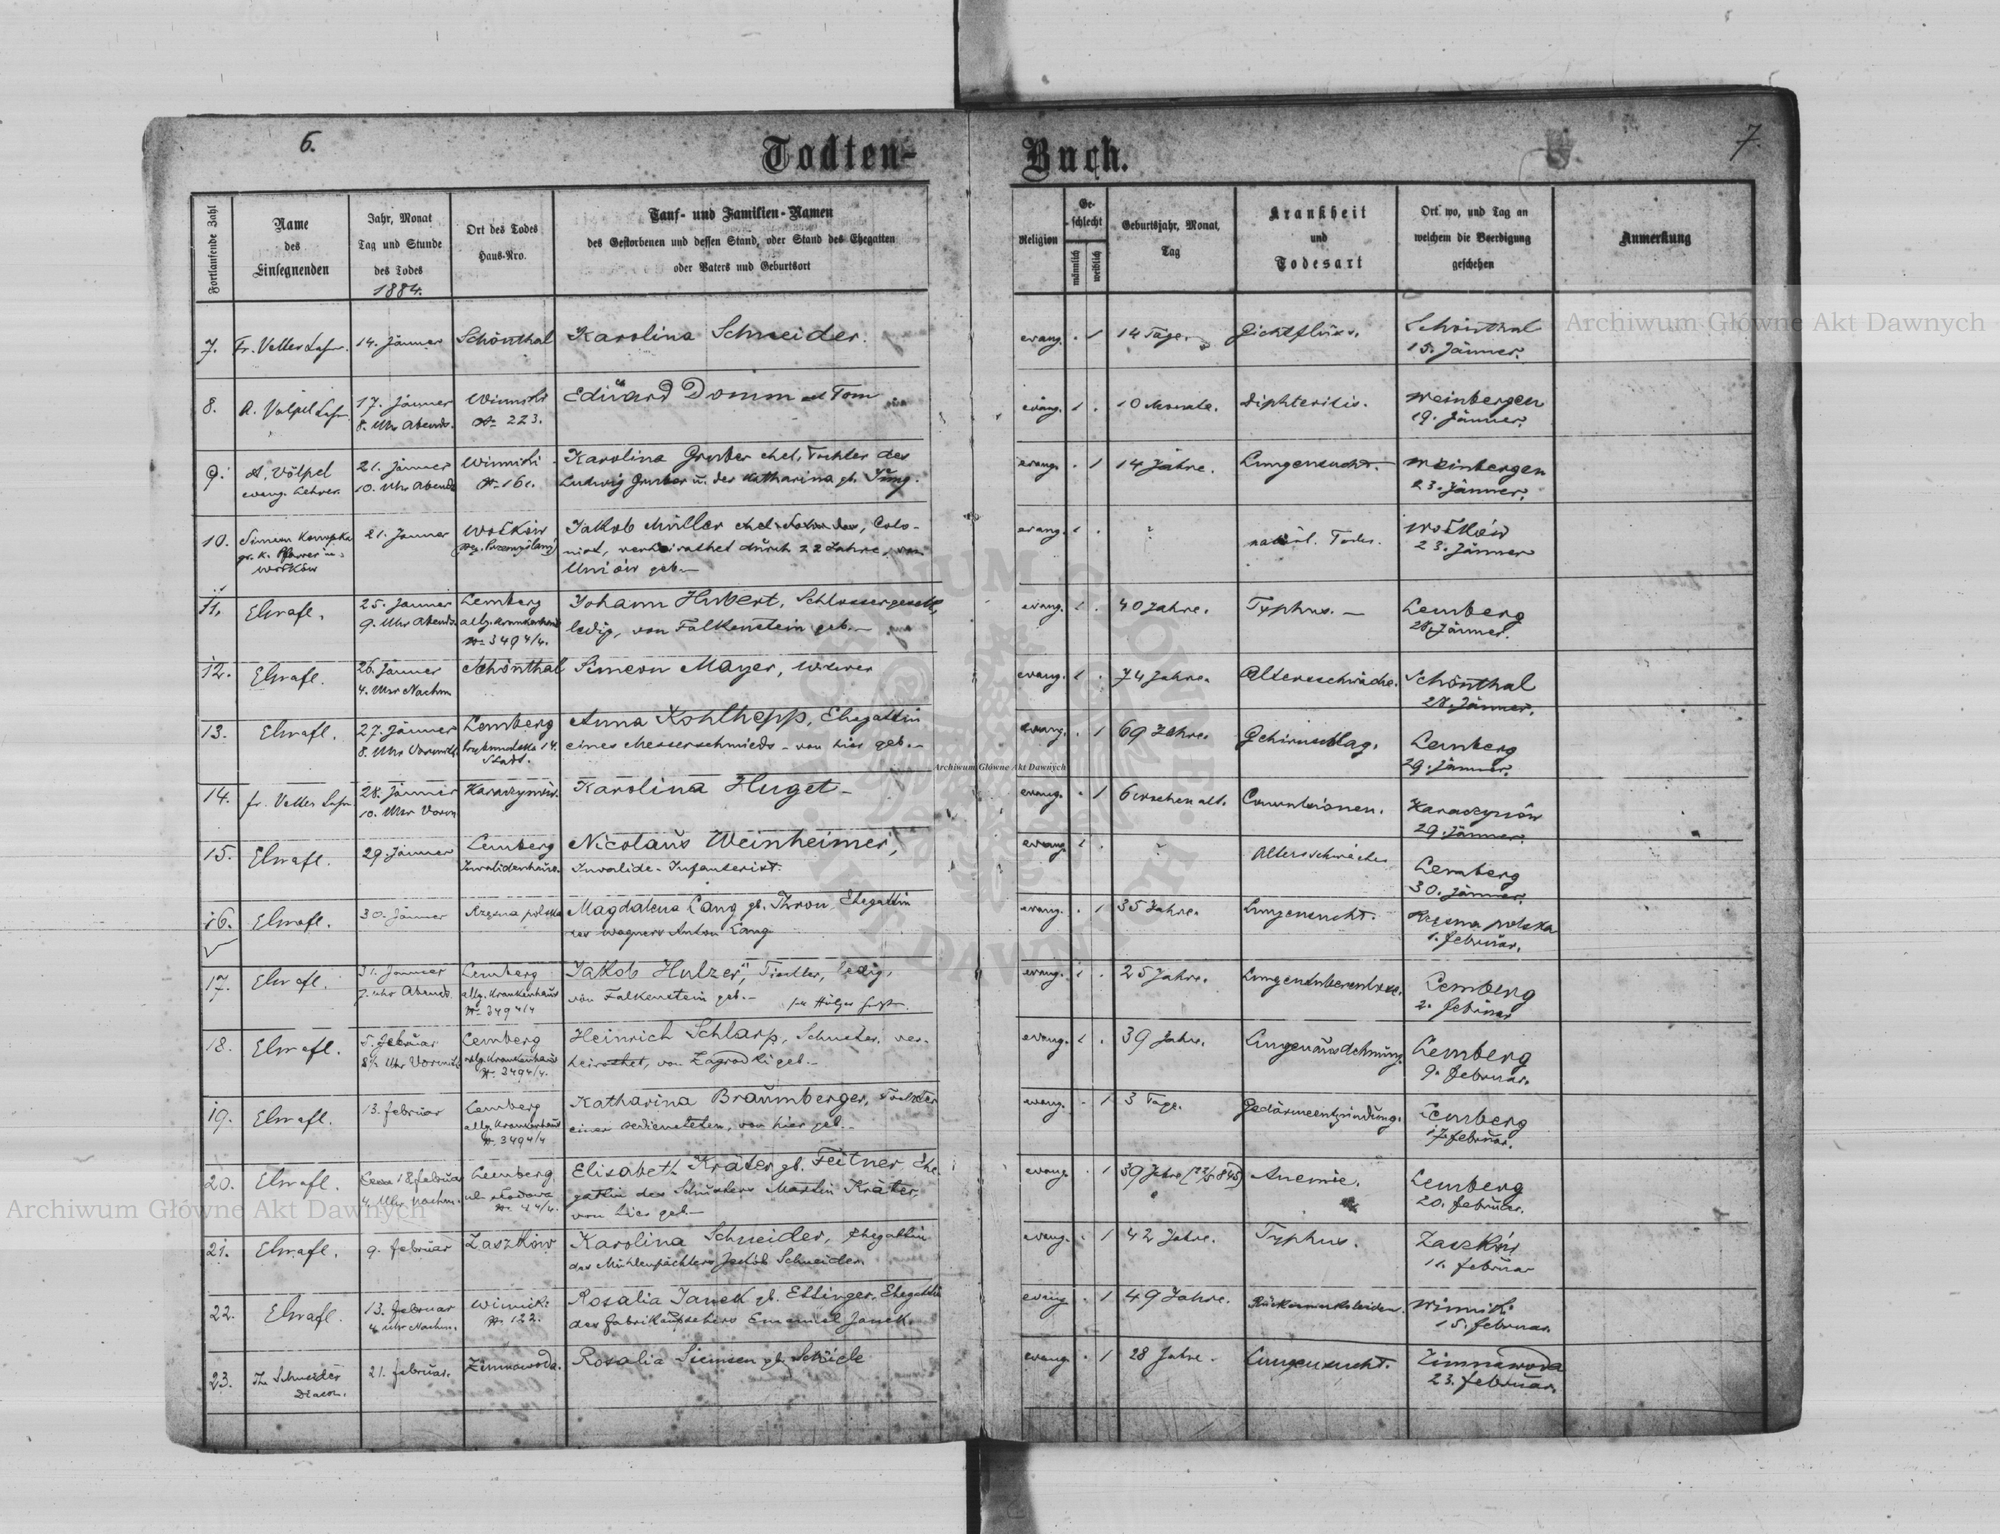 6.
7.
Todten-Buch.
Fortlaufende Zahl
Name
des
Einsegnenden
Jahr, Monat
Tag und Stunde
des Todes
1884.
Ort des Todes
Haus-Nro.
Tauf- und Familien-Namen
des Gestorbenen und dessen Stand, oder Stand des Ehegatten
oder Vaters und Geburtsort
Religion
Ge-
schlecht
männlich
weiblich
Geburtsjahr, Monat,
Tag
Krankheit
und
Todesart
Ort wo, und Tag an
welchem die Beerdigung
geschehen
Anmerkung
7. Fr. Vetter 14. Jänner Schönthal Karolina Schneider. evang. . 1 14 Tage. Gichtfluss. Schönthal
15. Jänner.
8. A. Völpel 17. Jänner Winniki Eduard Domm Tom evang. 1 . 10 Monate. Diphteritis. Weinbergen
8. Uhr Abends. Nr 223. 19. Jänner.
9. A. Völpel 21. Jänner Winniki Karolina Gruber ehel. Tochter des evang. . 1 14 Jahre. Lungensucht. Weinbergen
evang. Lehrer. 10. Uhr Abends Ludwig Gruber u. der Katharina gb. Jung. 23. Jänner.
10. Simeon 21. Jänner Jakob Müller Colo- evang. 1 .
gr. k. Pfarrer in nist, verheirathet durch 22 Jahre, von Todes. 23. Jänner
Unióv geb.
11. 25. Jänner Lemberg Johann Hubert, Schlossergeselle, evang. 1 . 40 Jahre. Typhus. Lemberg
9. Uhr Abends. allg. Krankenhaus ledig, von Falkenstein geb. 28. Jänner.
Nr 349 4/4.
12. 26. Jänner Schönthal Simeon Mayer, Witwer evang. 1 . 74 Jahre. Altersschwäche. Schönthal
4. Uhr Nachm 28. Jänner.
13. 27. Jänner Lemberg Anna Kohlhepp, Ehegattin evang. . 1 69 Jahre Gehirnschlag. Lemberg
8. Uhr Vormitt. 14. eines Messerschmieds - von hier geb. 29. Jänner.
Stadt.
14. Fr. Vetter 28. Jänner Karaczynów. Karolina Huget - evang. . 1 6 Wochen alt. Convulsionen. Karaczynów
10. Uhr Vorm 29. Jänner.
15. 29. Jänner Lemberg Nicolaus Weinheimer, evang. 1 . Altersschwäche Lemberg
Invalidenhaus. Invalide - Infanterist. 30. Jänner.
16. 30. Jänner Rzęsna polska Magdalena Lang gb. Thron Ehegattin evang. . 1 35 Jahre. Lungensucht. Rzęsna polska
des Wagners Anton Lang 1. Februar.
17. 31. Jänner Lemberg Jakob Hulzer, Tischler, ledig, evang. 1 . 25 Jahre. Lungentuberculose. Lemberg
7. Uhr Abends. allg. Krankenhaus von Falkenstein geb. 2. Februar
Nr 349 4/4
18. 5. Februar Lemberg Heinrich Schlarp, Schuster, ver- evang. 1 . 39 Jahre. Lungenausdehnung. Lemberg
8½ Uhr Vormitt. allg. Krankenhaus heirathet, von Zagrodki geb. 9. Februar.
Nr 349 4/4.
19. 13. Februar Lemberg Katharina Braumberger, Tochter evang. . 1 3 Tage. Gedärmeentzündung. Lemberg
allg. Krankenhaus einer Bediensteten, von hier geb. 17. Februar.
Nr. 349 4/4
20. 18. Februar Lemberg Elisabeth Kräter gb. Feitner Ehe- evang. . 1 39 Jahre Anemie. Lemberg
4. Uhr Nachm. gattin des Schusters Martin Kräter 20. Februar.
von hier geb.
21. 9. Februar Zaszków Karolina Schneider, Ehegattin evang. . 1 42 Jahre. Typhus. Zaszków
des Mühlenpächters Jakob Schneider. 11. Februar
22. 13. Februar Winniki Rosalia Janek gb. Ettinger, Ehegattin evang. . 1 49 Jahre. Rückenmarksleiden. Winniki
4 Uhr Nachm. Nr. 122. des Fabrikaufsehers Emanuel Janek. 15. Februar.
23. Schneider 21. Februar. Zimnawoda. Rosalia Siemsen gb. evang. . 1 28 Jahre. Lungensucht. Zimnawoda
Diacon. 23. Februar.
Archiwum Główne Akt Dawnych
Archiwum Główne Akt Dawnych
Archiwum Główne Akt Dawnych